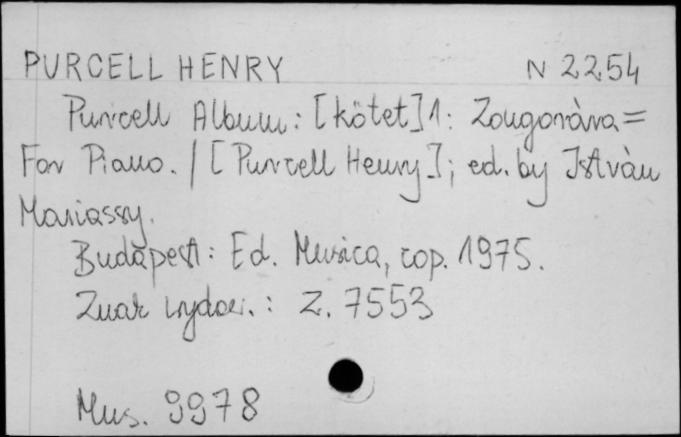 PURCELL HENRY N 2254
Purcell Album: [kötet] 1: Zongoràra =
For Piano. / [Purcell Henry]; ed. by Istvàn
Mariassy.
Budapest: Ed. Musica, cop. 1975.
Znak wydaw.: Z. 7553
Mus. 9978